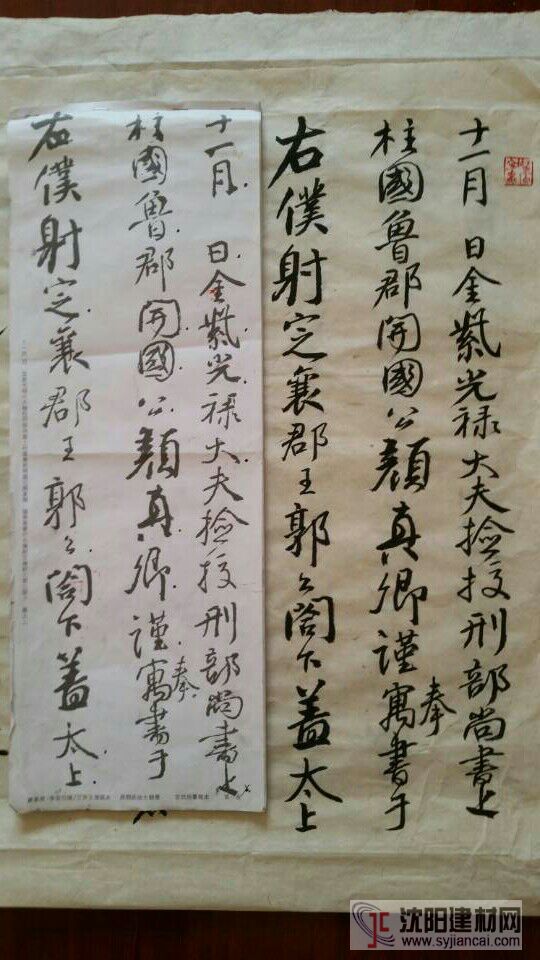 十一月 日金紫光禄大夫检校刑部尚書上
柱國魯郡開國公顏真卿謹奉寓書于
右僕射定襄郡王郭公閤下蓋太上
十一月 日金紫光禄大夫检校刑部尚書上
柱國魯郡開國公顏真卿謹奉寓書于
右僕射定襄郡王郭公閤下蓋太上
沈阳建材网
www.syjiancai.com